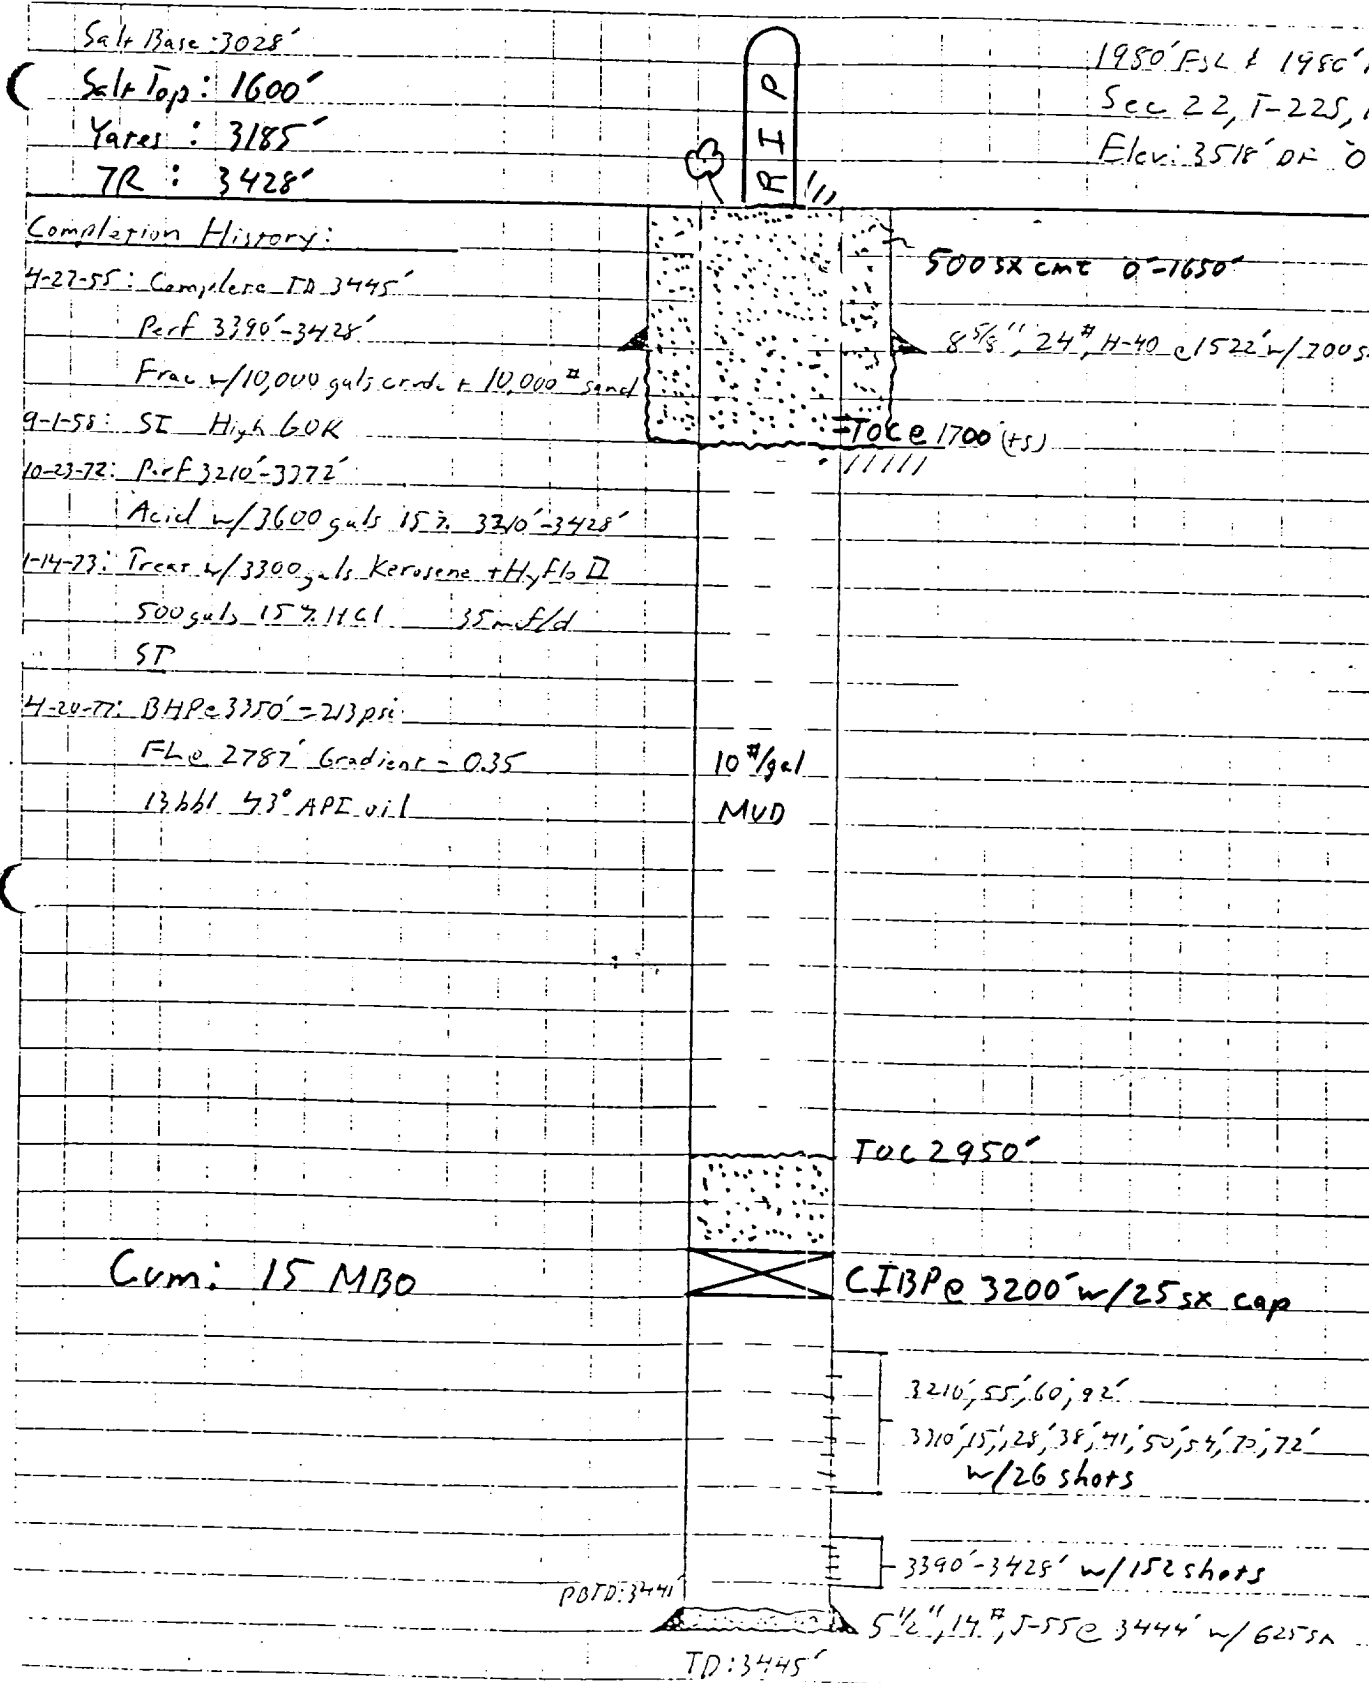 Salt Base: 3028'
Salt Top: 1600'
Yates: 3185'
7R: 3428'
RIP
1980' FSL & 1980'
Sec 22, T-22S,
Elev: 3518' DF
Completion History:
4-27-55: Complete TD 3445'
Perf 3390'-3428'
Frac w/10,000 gals crude + 10,000# sand
9-1-58: SI High GOR
10-23-72: Perf 3210'-3372'
Acid w/3600 gals 15% 3210'-3428'
1-14-73: Treat w/3300 gals Kerosene + Hyflo II
500 gals 15% HCl 35 mcf/d
SI
4-20-77: BHP @ 3350' = 213 psi
FL @ 2787' Gradient = 0.35
13 bbl 43° API oil
500 sx cmt 0'-1650'
8 5/8", 24#, H-40 @ 1522' w/700 s
TOC @ 1700' (TS)
10 #/gal
MUD
TOC 2950'
Cum: 15 MBO
CIBP @ 3200' w/25 sx cap
3210', 55', 60', 92'
3310', 15', 28', 38', 41', 50', 54', 70', 72'
w/26 shots
3390'-3428' w/152 shots
PBTD: 3441'
5 1/2", 14#, J-55 @ 3444' w/ 625 sx
TD: 3445'